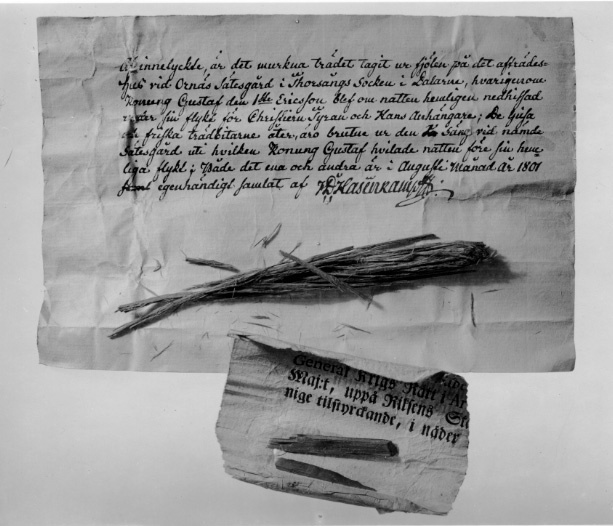 innelyckte, är det murkna trädet tagit ur fjölen på det affträdes-
hus vid Ornäs Sätesgård i Thorsångs Socken i Dalarne, hvarigenom
Konung Gustaf den 1ste Ericsson blef om natten hemligen nedhissad
när sin flykt för Christiern Tyran och Hans Anhängare; De ljusa
friska trädbitarne åter, äro brutne ur den Säng vid nämde
Sätesgård uti hvilken Konung Gustaf hvilade natten före sin hem-
liga flykt; Både det ena och andra är i Augusti Månad År 1801
egenhändigt samlat af Hasenkampff
General Krigs Rätt i
Maj:t, uppå Riksens
nige tilstyrckande, i nåder